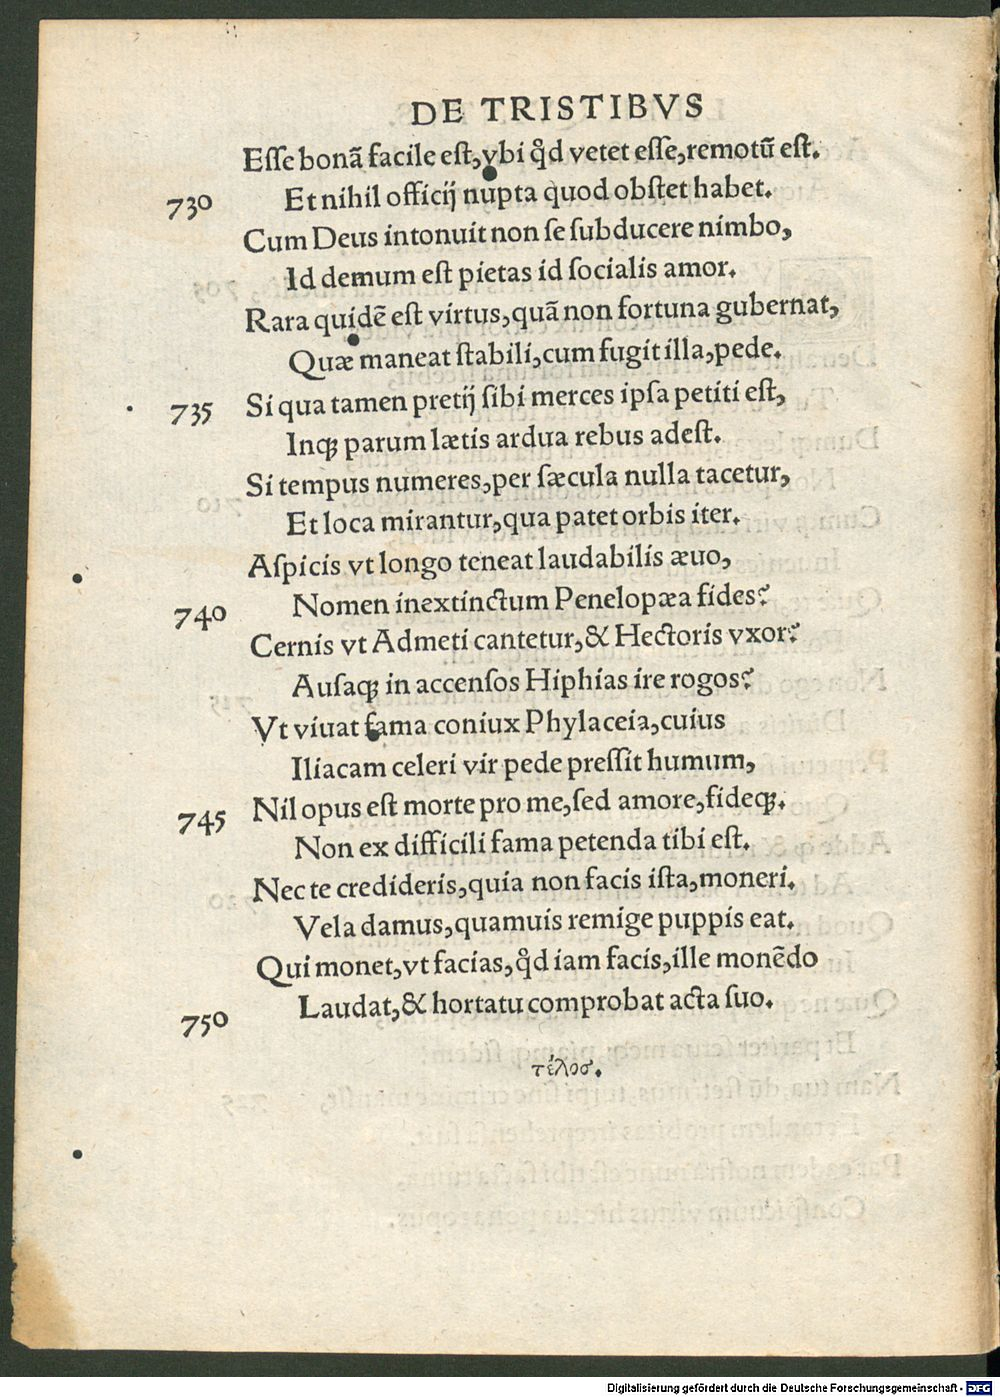 DE TRISTIBVS
Eſſe bonã facile eſt, vbi ꝙd vetet eſſe, remotũ eſt.
730 Et nihil officij nupta quod obſtet habet.
Cum Deus intonuit non ſe ſubducere nimbo,
Id demum eſt pietas id ſocialis amor.
Rara quidẽ eſt virtus, quã non fortuna gubernat,
Quæ maneat ſtabili, cum fugit illa, pede.
735 Si qua tamen pretij ſibi merces ipſa petiti eſt,
Inqȝ parum lætis ardua rebus adeſt.
Si tempus numeres, per ſæcula nulla tacetur,
Et loca mirantur, qua patet orbis iter.
Aſpicis vt longo teneat laudabilis æuo,
740 Nomen inextinctum Penelopæa fides?
Cernis vt Admeti cantetur, & Hectoris vxor?
Auſaqȝ in accenſos Hiphias ire rogos?
Vt viuat fama coniux Phylaceia, cuius
Iliacam celeri vir pede preſſit humum,
745 Nil opus eſt morte pro me, ſed amore, fideqȝ.
Non ex difficili fama petenda tibi eſt.
Nec te credideris, quia non facis iſta, moneri.
Vela damus, quamuis remige puppis eat.
Qui monet, vt facias, ꝙd iam facis, ille monẽdo
750 Laudat, & hortatu comprobat acta ſuo.
τέλος.
Digitalisierung gefördert durch die Deutsche Forschungsgemeinschaft - DFG